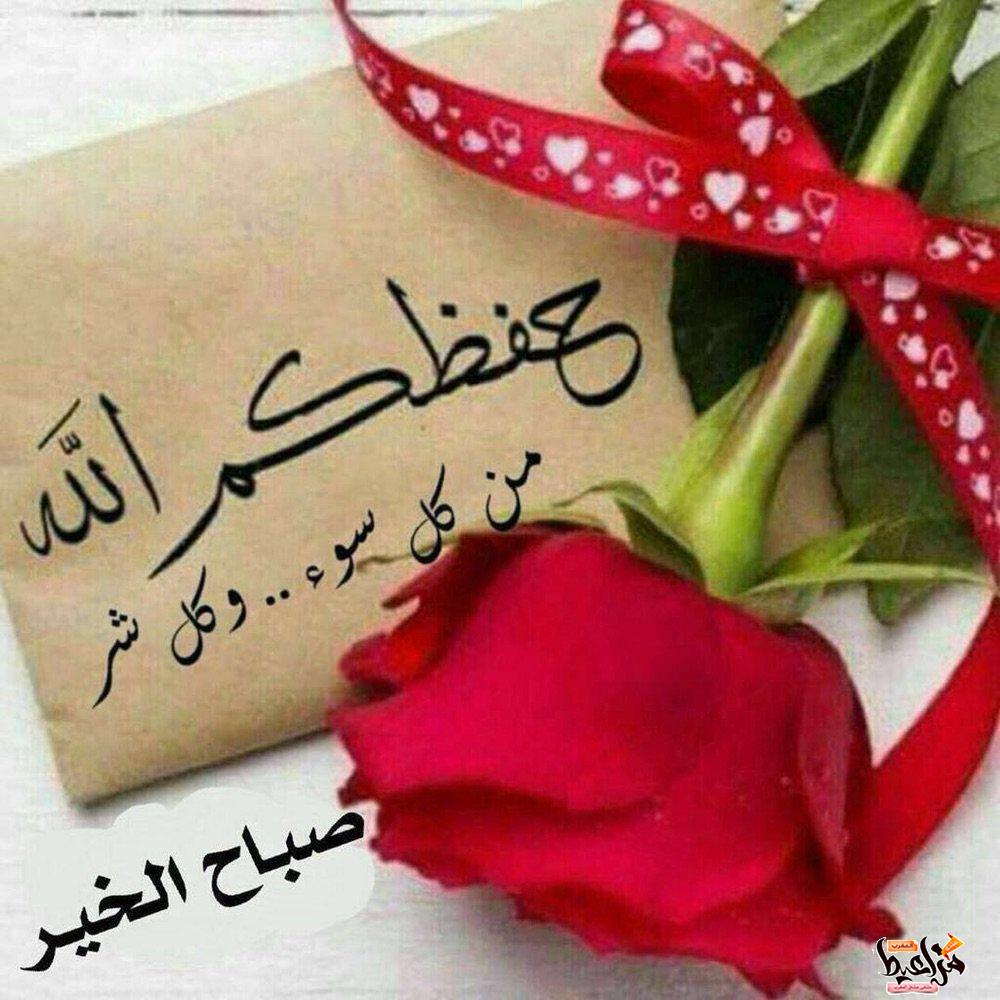 حفظكم اللَّه
من كل سوء .. وكل شر
صباح الخير
المغرب